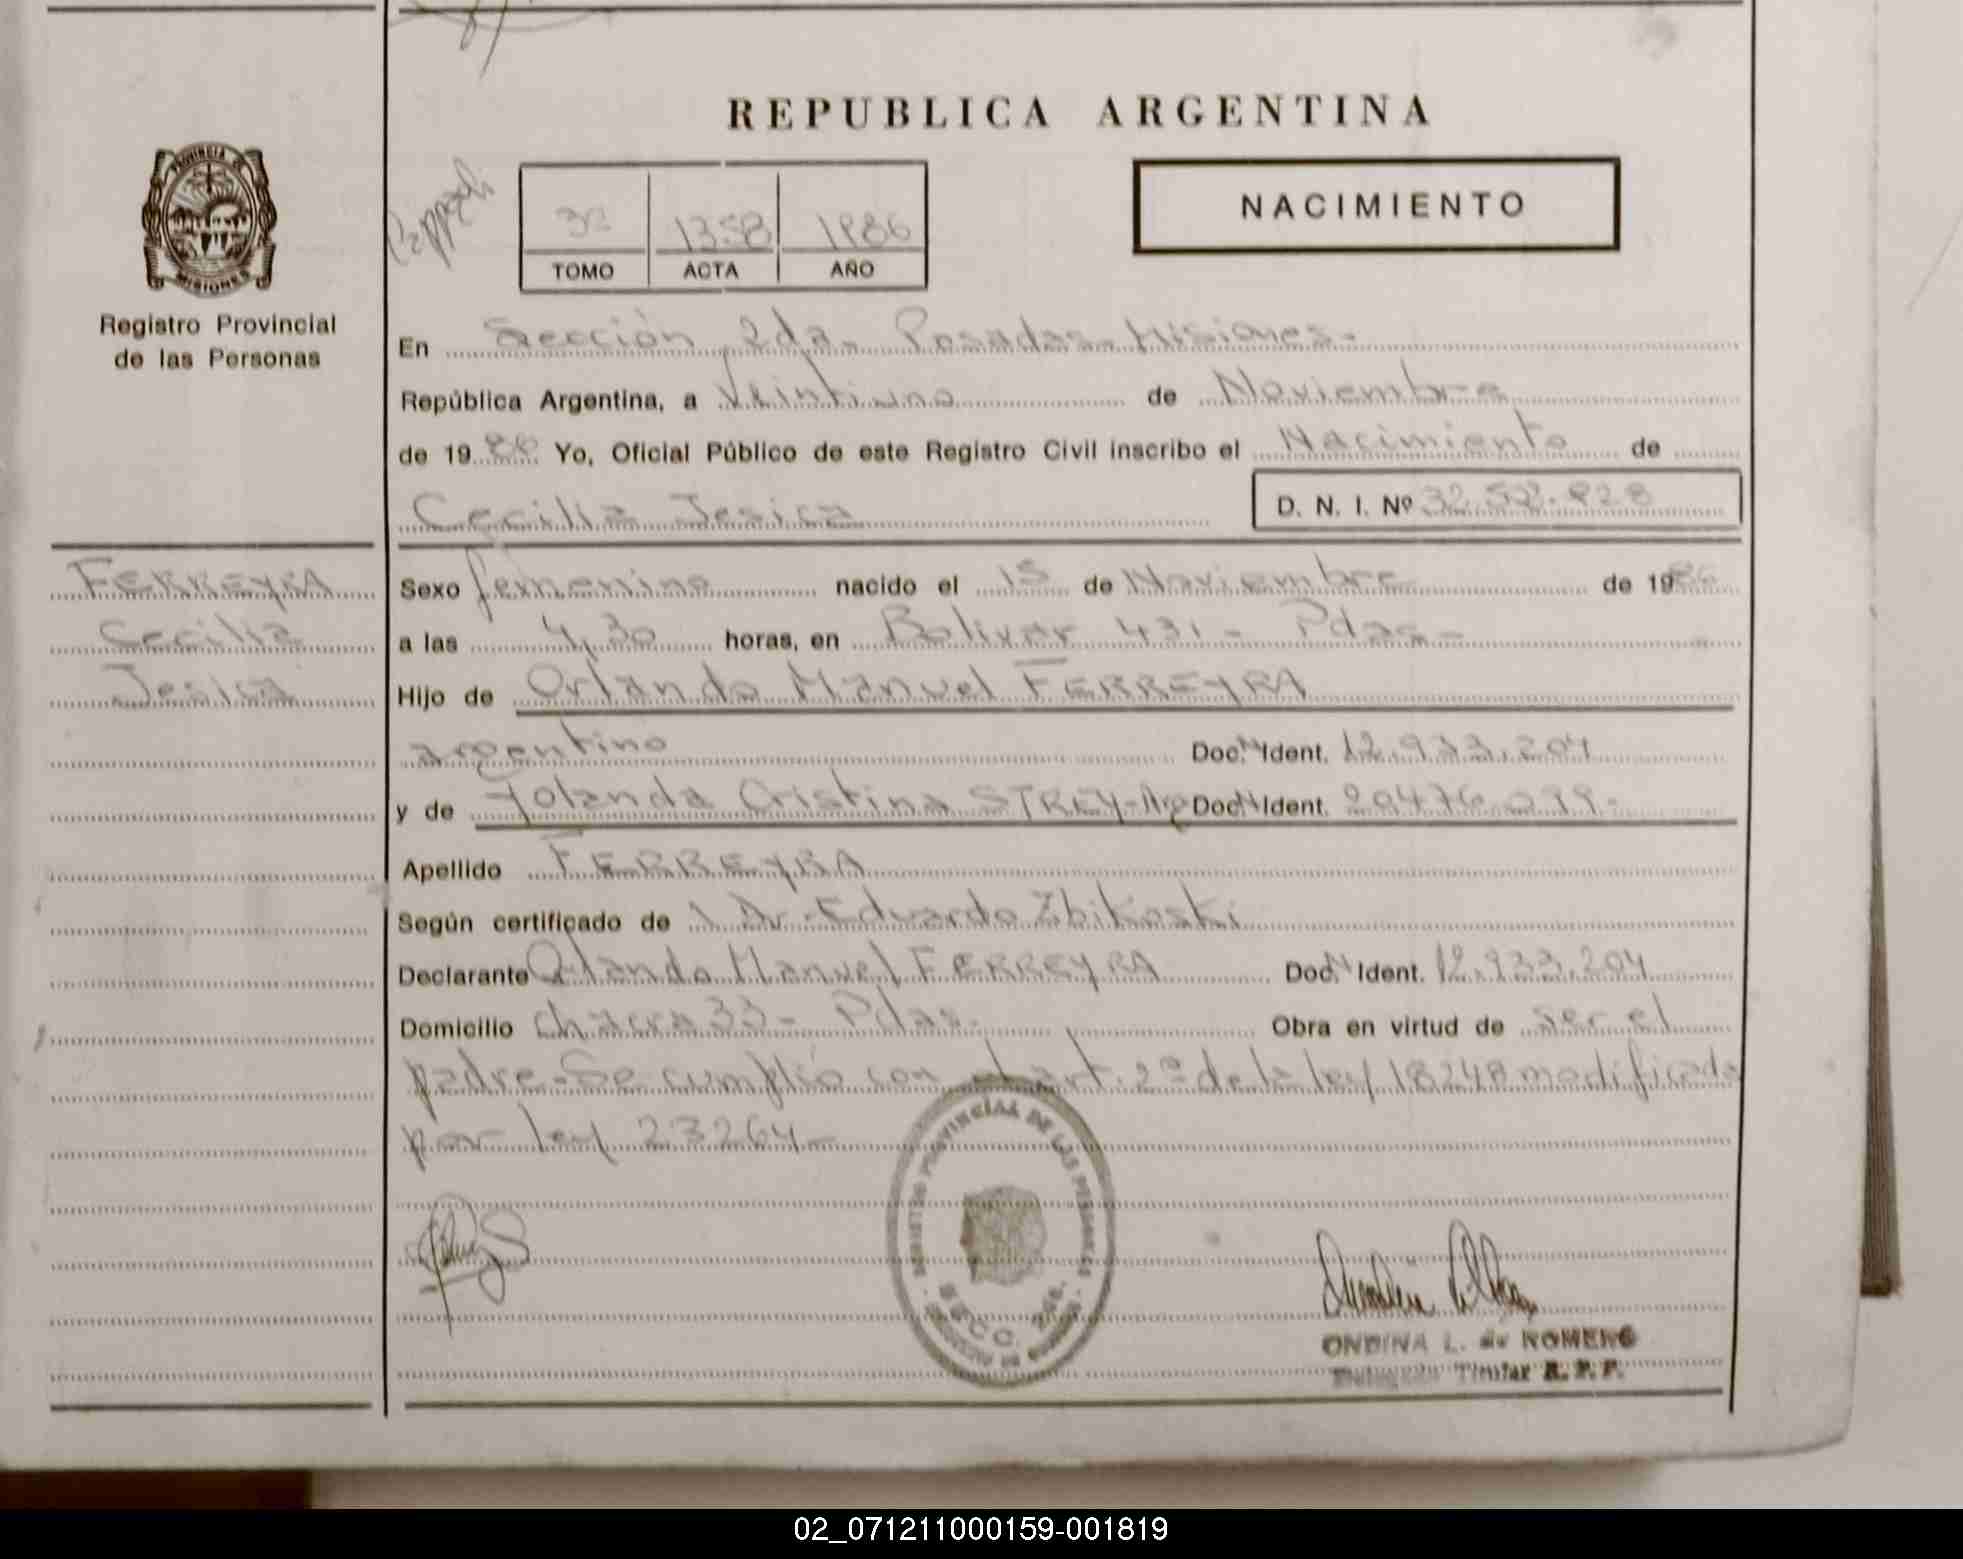 REPUBLICA ARGENTINA
PROVINCIA DE
MISIONES
Registro Provincial
de las Personas
1358 1986
TOMO ACTA AÑO
NACIMIENTO
En Sección 2da. Posadas-Misiones-
República Argentina, a Veintiuno de Noviembre
de 1986 Yo, Oficial Público de este Registro Civil inscribo el Nacimiento de
Cecilia Jesica D. N. I. Nº
FERREYRA
Cecilia
Jesica
Sexo femenino nacido el 15 de Noviembre de 1986
a las 4,30 horas, en Bolivar 431- Pdas-
Hijo de Orlando Manuel FERREYRA
argentino Doc. Ident. 12.933.204
y de Yolanda Cristina STREY-Arg Doc. Ident.
Apellido FERREYRA
Según certificado de Dr. Eduardo Zbikoski
Declarante Orlando Manuel FERREYRA Doc. Ident. 12.933.204
Domicilio chacra 33- Pdas. Obra en virtud de ser el
padre-Se cumplió con el art. 2º de la ley 18248 modificada
por ley 23264-
REGISTRO PROVINCIAL DE LAS PERSONAS
SECC. 2da.
ONDINA L. de ROMERO
Titular R. P. P.
02_071211000159-001819